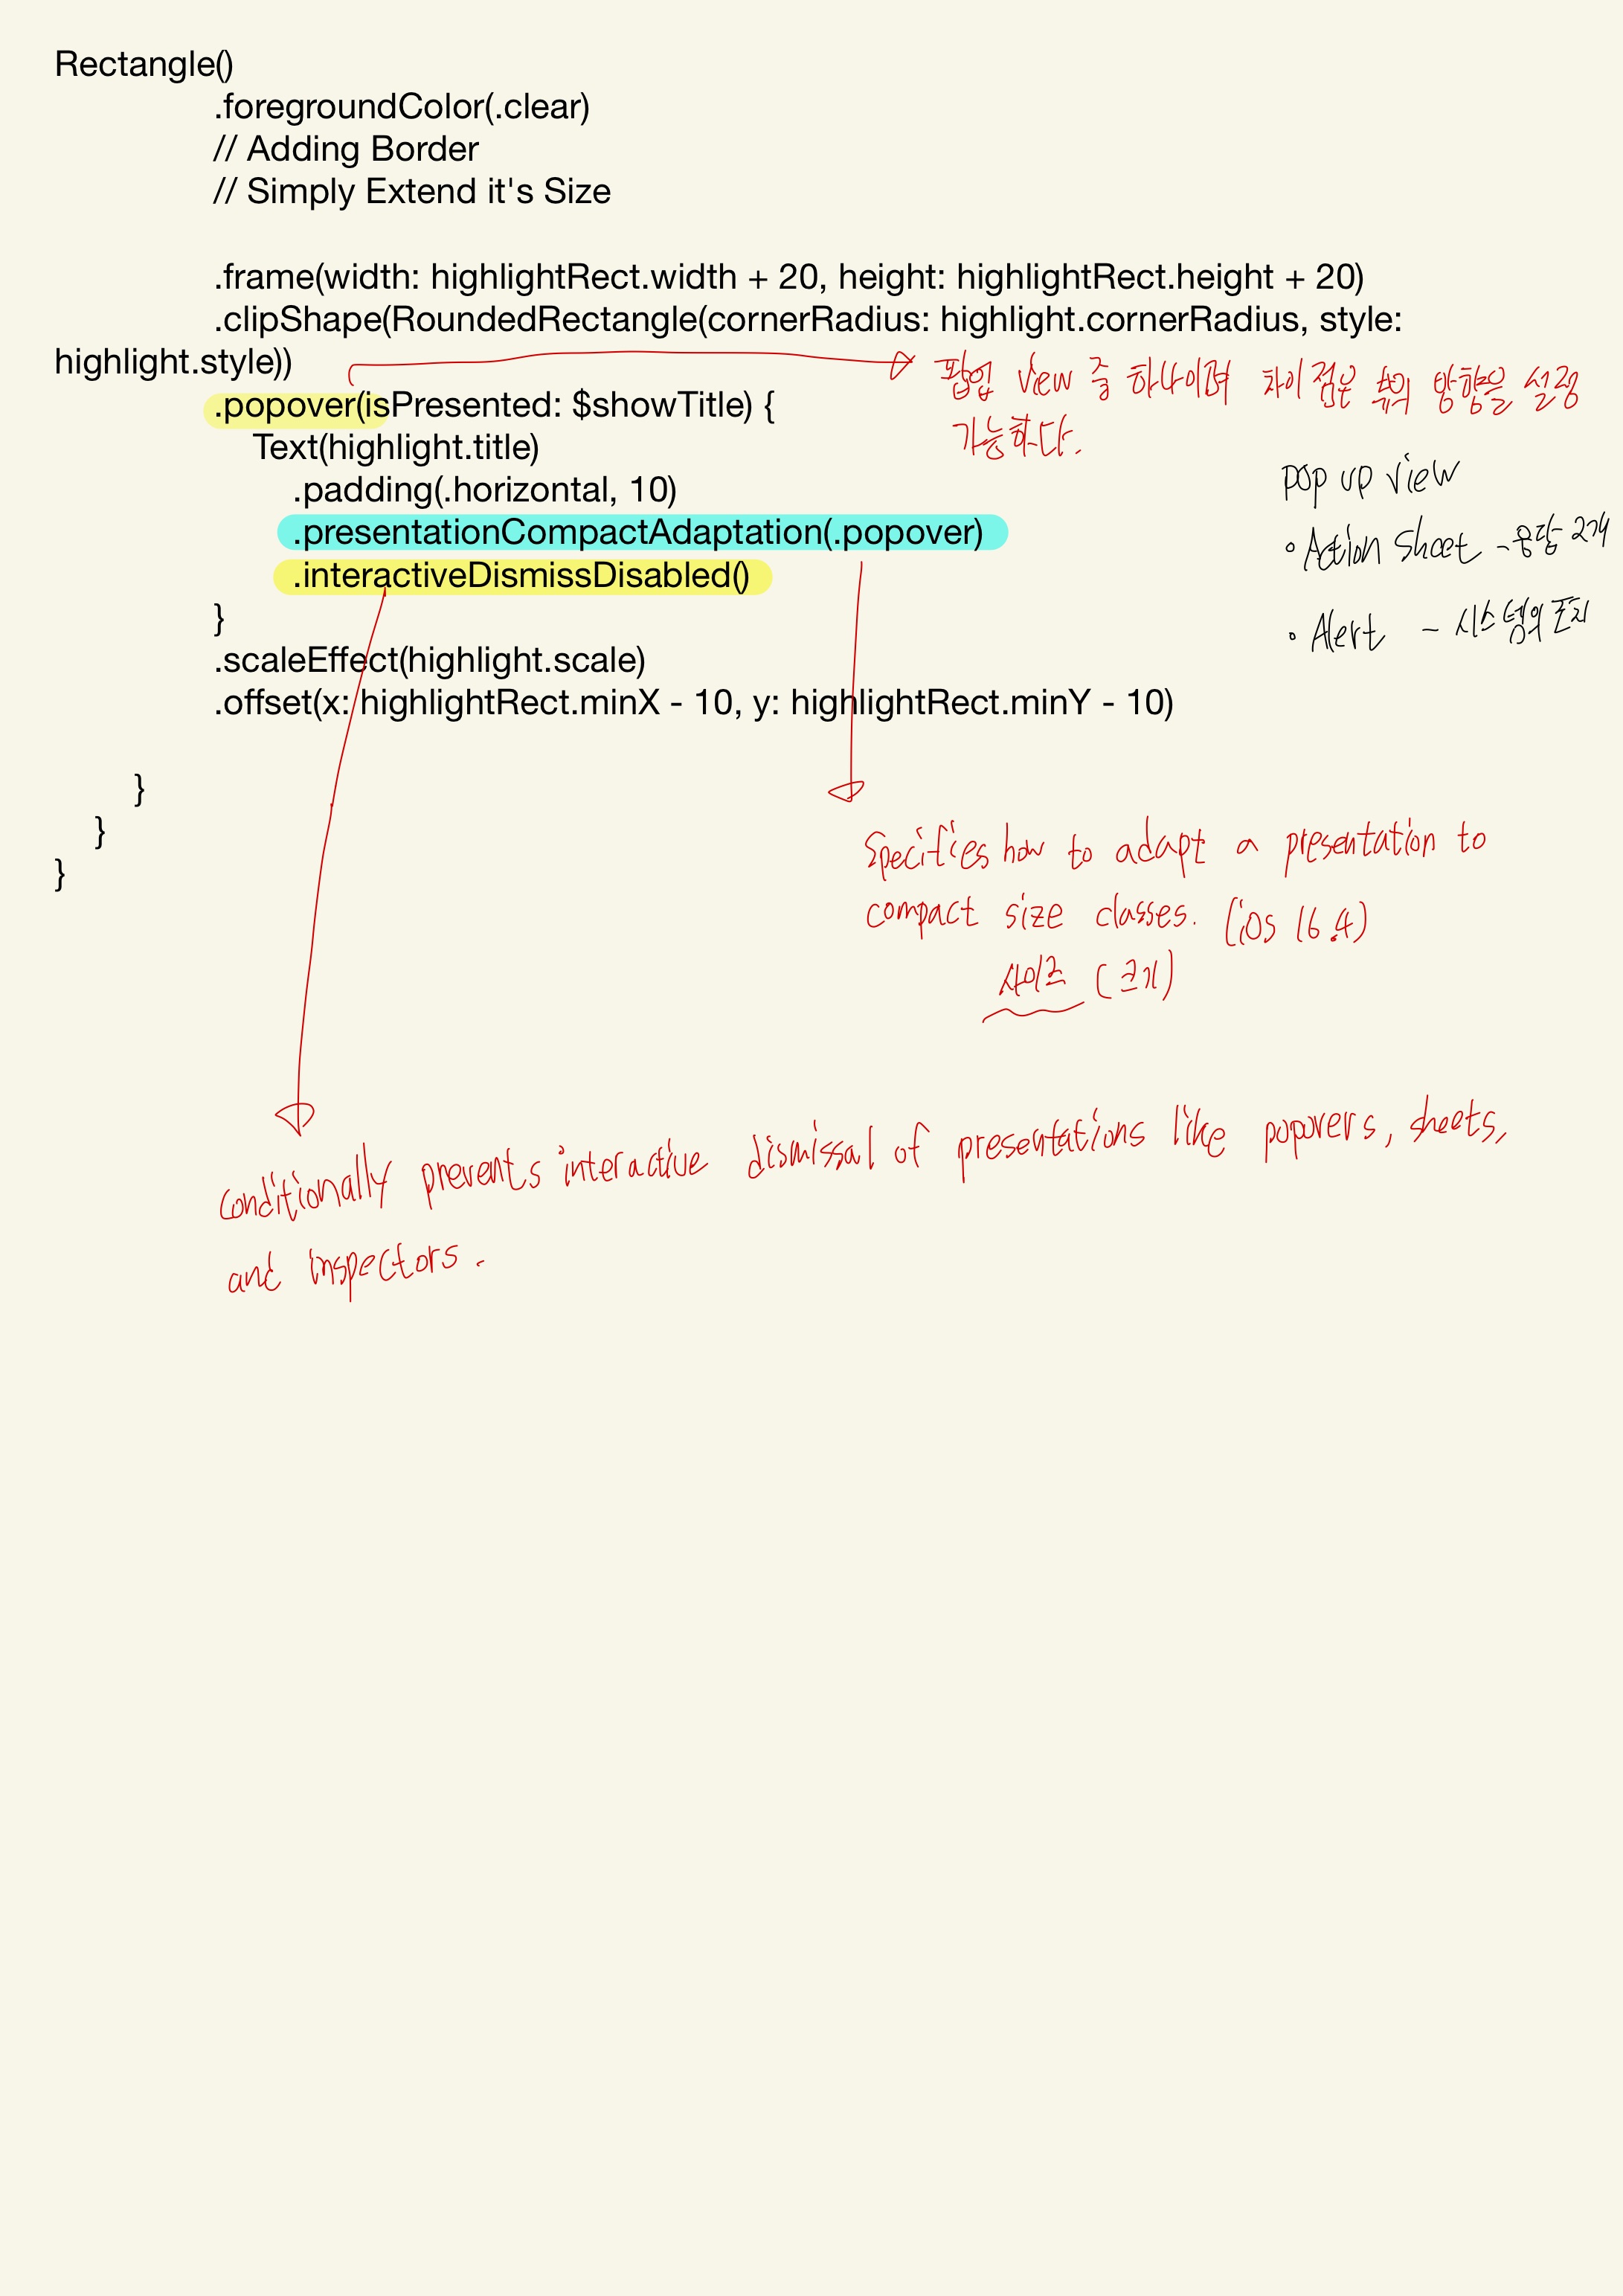 Rectangle()
.foregroundColor(.clear)
// Adding Border
// Simply Extend it's Size
.frame(width: highlightRect.width + 20, height: highlightRect.height + 20)
.clipShape(RoundedRectangle(cornerRadius: highlight.cornerRadius, style:
highlight.style))
팝업 View 중 하나이며 차이점은 뷰의 방향을 설정
가능하다.
.popover(isPresented: $showTitle) {
Text(highlight.title)
.padding(.horizontal, 10)
.presentationCompactAdaptation(.popover)
.interactiveDismissDisabled()
}
.scaleEffect(highlight.scale)
.offset(x: highlightRect.minX - 10, y: highlightRect.minY - 10)
}
}
}
pop up view
• Action Sheet - 응답 2개
• Alert - 시스템의
Specifies how to adapt a presentation to
compact size classes. (iOS 16.4)
사이즈 (크기)
conditionally prevents interactive dismissal of presentations like popovers, sheets,
and inspectors.